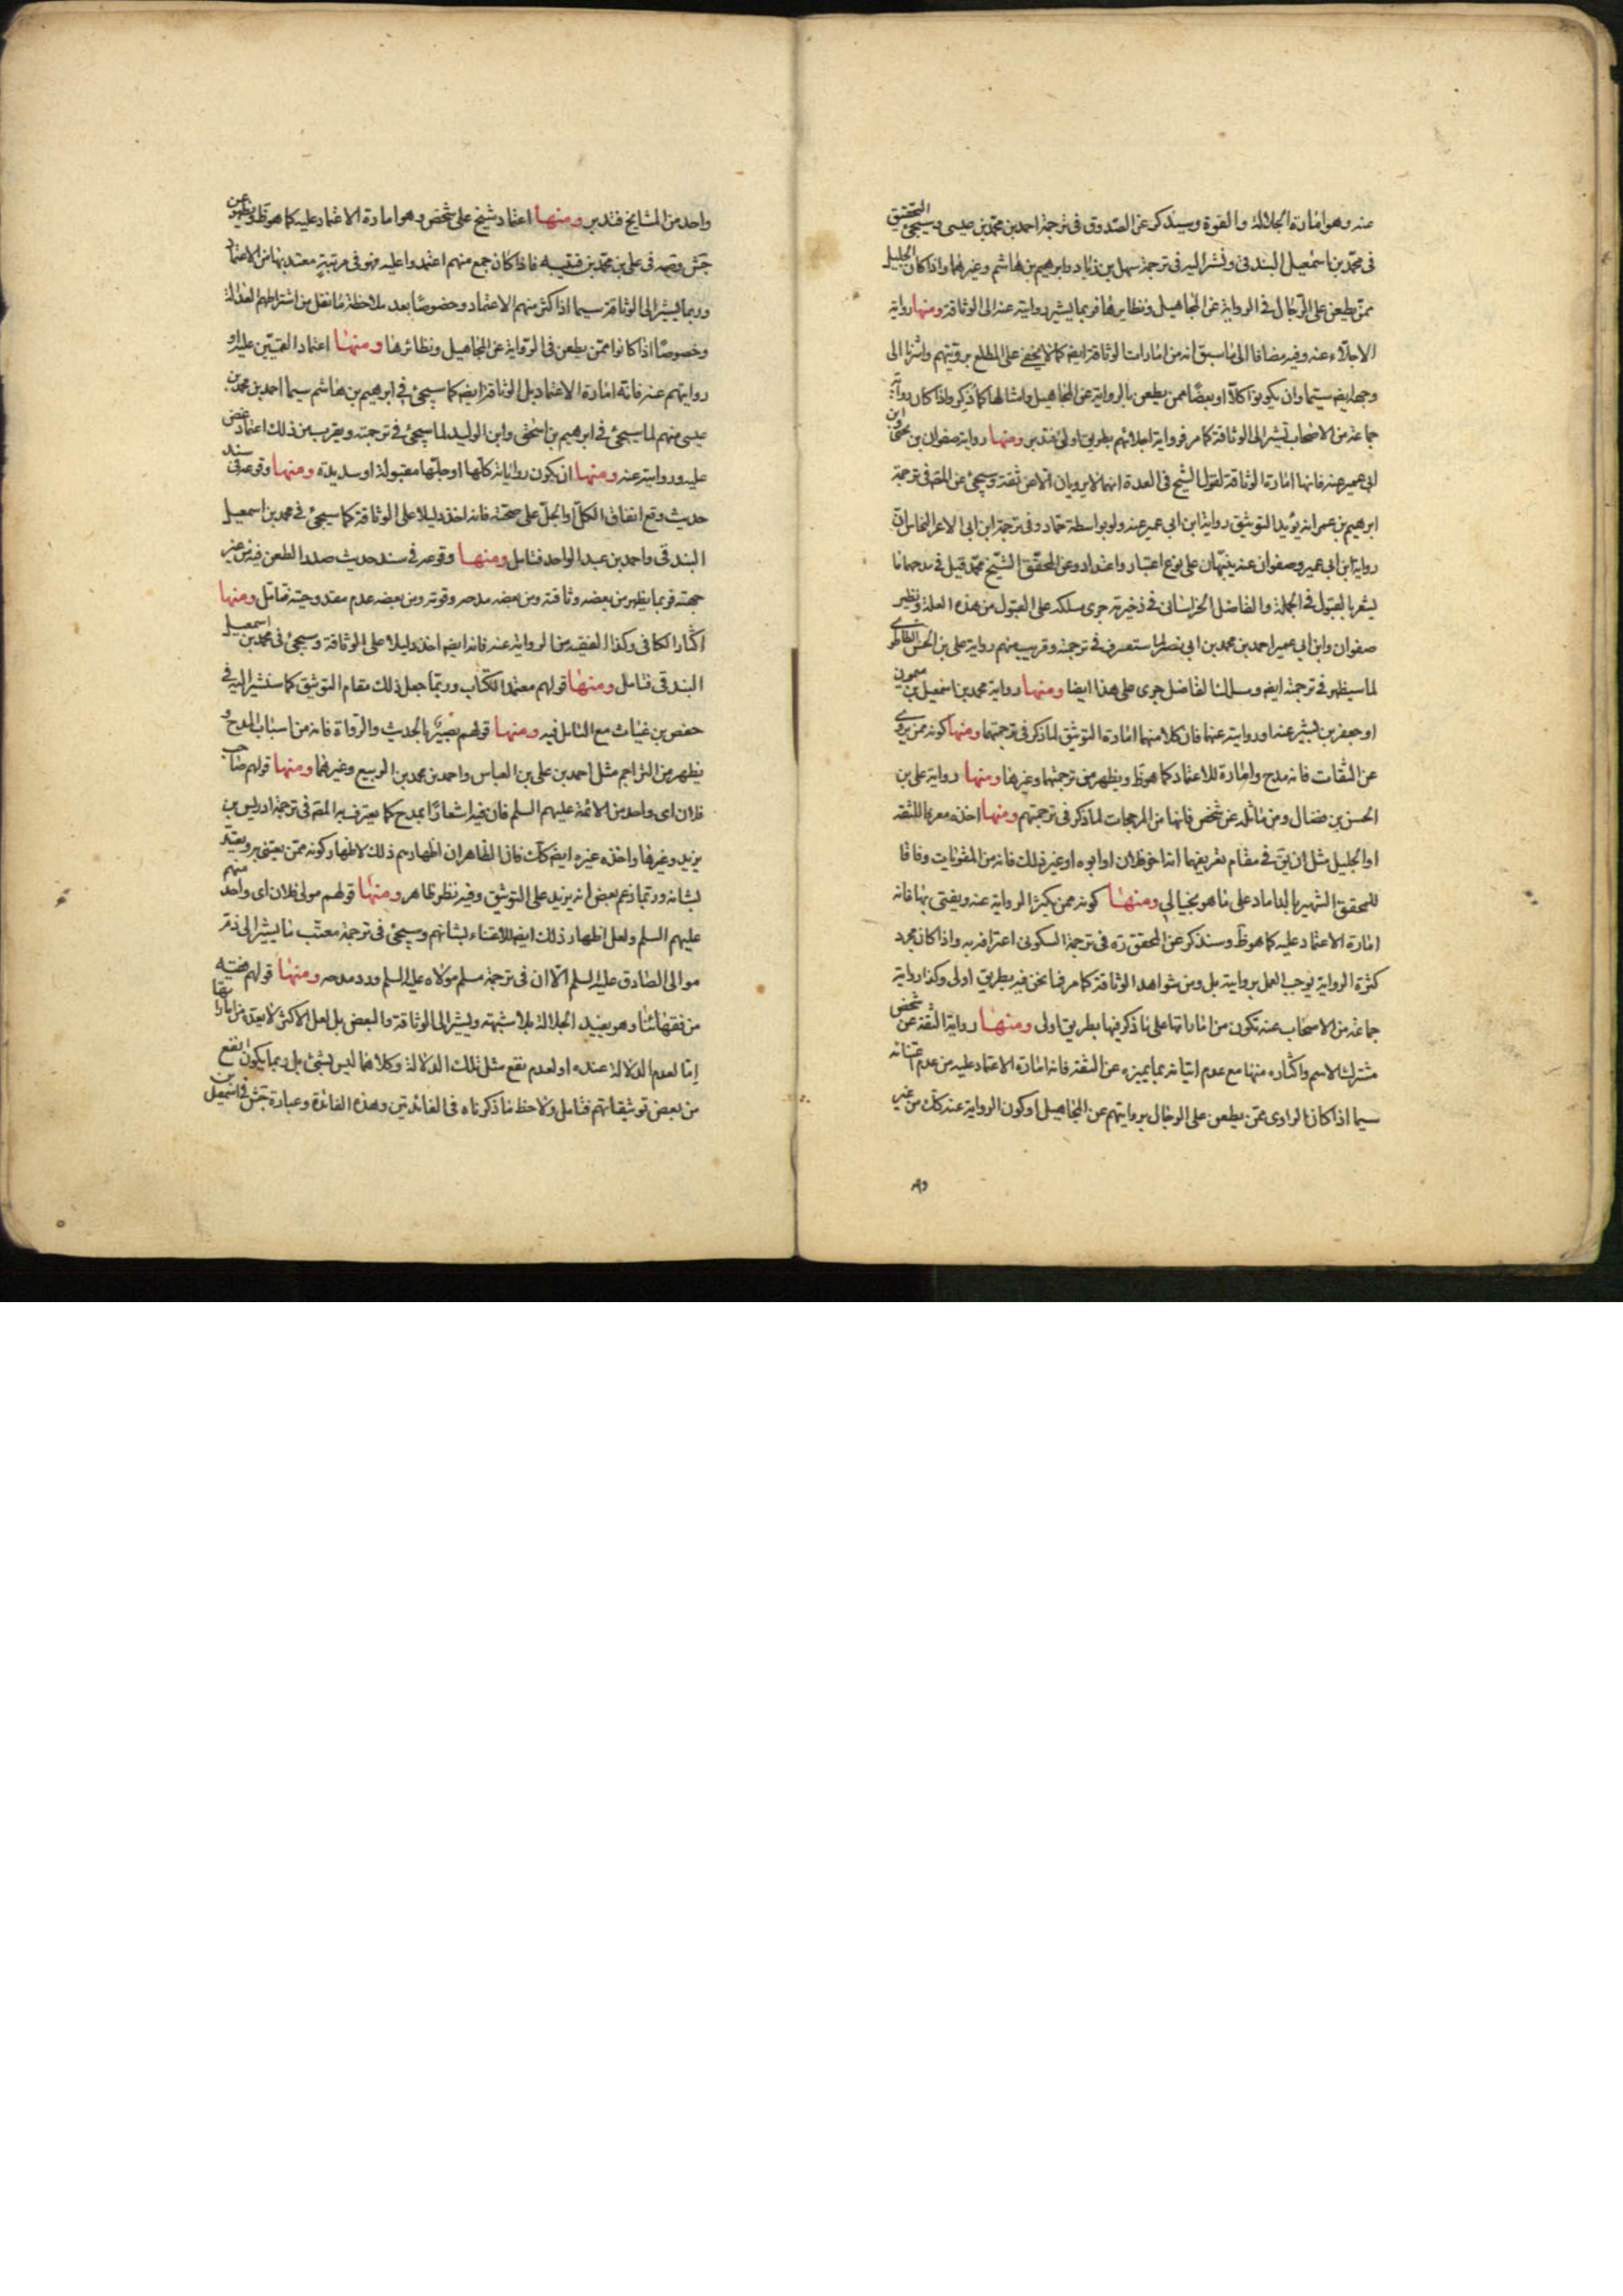 عنه وهو امارة الجلالة والقوة وسيذكر عن الصدوق فى ترجمة احمد بن محمد بن عيسى وسيجئ التحقيق
فى محمد بن اسمعيل البندقى ونشير اليه فى ترجمة سهل بن زياد وابرهيم بن هاشم وغيرهما واذا كان الجليل
ممن يطعن على الرجال فى الرواية عن المجاهيل ونظايرها فربما يشير روايته عنه الى الوثاقة ومنها رواية
الاجلاء عنه وفيه مضافا الى ما سبق انه من امارات الوثاقة ايضا كما لا يخفى على المطلع برويتهم واشرنا الى
وجهه ايضا سيما وان يكونوا كلا او بعضا ممن يطعن بالرواية عن المجاهيل وامثالها كما ذكر واذا كان رواية
جماعة من الاصحاب تشير الى الوثاقة كما مر فرواية اجلائهم بطريق اولى فتدبر ومنها رواية صفوان بن يحيى وابن
ابى عمير عنه فانها امارة الوثاقة لقول الشيخ فى العدة انهما لا يرويان الا عن ثقة وسيجئ عن المصه فى ترجمة
ابرهيم بن عمر انه يؤيد التوثيق رواية ابن ابى عمير عنه ولو بواسطة حماد وفى ترجمة ابن ابى الاعز النخاس ان
رواية ابن ابى عمير وصفوان عنه ينبهان على نوع اعتبار واعتداد وعن المحقق الشيخ محمد قيل فى مدحهما ما
يشعر بالقبول فى الجملة والفاضل الخراسانى فى ذخيرته جرى مسلكه على القبول من هذه العلة ونظير
صفوان وابن ابى عمير احمد بن محمد بن ابى نصر لما ستعرف فى ترجمته وقريب منهم رواية على بن الحسن الطاطرى
لما سيظهر فى ترجمته ايضا ومسلك الفاضل جرى على هذا ايضا ومنها رواية محمد بن اسمعيل بن ميمون
او جعفر بن بشير عنه او روايته عنهما فان كلا منهما امارة التوثيق لما ذكر فى ترجمتهما ومنها كونه ممن يروى
عن الثقات فانه مدح وامارة للاعتماد كما هو ظ ويظهر من ترجمتهما وغيرها ومنها رواية على بن
الحسن بن فضال ومن ماثله عن شخص فانها من المرجحات لما ذكر فى ترجمتهم ومنها اخذه معرفا للثقة
او الجليل مثل ان يق فى مقام تعريفهما انه اخو فلان او ابوه او غير ذلك فانه من المقويات وفاقا
للمحقق الشهير بالداماد على ما هو ببالى ومنها كونه ممن يكثر الرواية عنه ويفتى بها فانه
امارة الاعتماد عليه كما هو ظ وسنذكر عن المحقق ره فى ترجمة السكونى اعترافه به واذا كان مجرد
كثرة الرواية يوجب العمل بروايته بل ومن شواهد الوثاقة كما مر فما نحن فيه بطريق اولى وكذا رواية
جماعة من الاصحاب عنه تكون من اماراتها على ما ذكر فيها بطريق اولى ومنها رواية الثقة عن شخص
مشترك الاسم واكثاره منها مع عدم اتيانه بما يميزه عن الثقة فانه امارة الاعتماد عليه من عدم اعتنائه
سيما اذا كان الراوى ممن يطعن على الرجال بروايتهم عن المجاهيل او كون الرواية عنه كك من غير
واحد من المشايخ فتدبر ومنها اعتماد شيخ على شخص وهو امارة الاعتماد عليه كما هو ظ ويظهر عن
جش وصه فى على بن محمد بن قتيبه فاذا كان جمع منهم اعتمدوا عليه فهو فى مرتبة معتد بها من الاعتماد
وربما يشير الى الوثاقة سيما اذا كثر منهم الاعتماد وخصوصا بعد ملاحظة ما نقل من اشتراطهم العدالة
وخصوصا اذا كانوا ممن يطعن فى الرواية عن المجاهيل ونظائرها ومنها اعتماد القميين عليه او
روايتهم عنه فانه امارة الاعتماد بل الوثاقة ايضا كما سيجئ فى ابرهيم بن هاشم سيما احمد بن محمد بن
عيسى منهم لما سيجئ فى ابرهيم بن اسحق وابن الوليد لما سيجئ فى ترجمته ويقرب من ذلك اعتماد غض
عليه وروايته عنه ومنها ان يكون رواياته كلها او جلها مقبولة او سديدة ومنها وقوعه فى سند
حديث وقع اتفاق الكل او الجل على صحته فانه اخذ دليلا على الوثاقة كما سيجئ فى محمد بن اسمعيل
البندقى واحمد بن عبد الواحد فتامل ومنها وقوعه فى سند حديث صدر الطعن فيه من غير
جهته فربما يظهر من بعضه وثاقته ومن بعضه مدحه وقوته ومن بعضه عدم مقدوحيته تامل ومنها
اكثار الكافى وكذا الفقيه من الرواية عنه فانه ايضا اخذ دليلا على الوثاقة وسيجئ فى محمد بن اسمعيل
البندقى فتامل ومنها قولهم معتمد الكتاب وربما جعل ذلك مقام التوثيق كما سنشير اليه فى
حفص بن غياث مع التامل فيه ومنها قولهم بصير بالحديث والرواة فانه من اسباب المدح و
يظهر من التراجم مثل احمد بن على بن العباس واحمد بن محمد بن الربيع وغيرهما ومنها قولهم صاحب
فلان اى واحد من الائمة عليهم السلم فان فيه اشعارا بمدح كما يعترف به المصه فى ترجمة ادريس بن
يزيد وغيرها واخذه غيره ايضا كك فان الظاهر ان اظهارهم ذلك لاظهار كونه ممن يعتنى به ويعتد
بشانه وربما زعم بعض انه يزيد على التوثيق وفيه نظر ظاهر ومنها قولهم مولى فلان اى واحد منهم
عليهم السلم ولعل اظهار ذلك ايضا للاعتناء بشانهم وسيجئ فى ترجمة معتب ما يشير الى ذم
موالى الصادق عليه السلم الا ان فى ترجمة مسلم مولاه عليه السلم ورد مدحه ومنها قولهم فقيه
من فقهائنا وهو يفيد الجلالة بلا شبهة ويشير الى الوثاقة والبعض بل لعل الاكثر لا يعده من اماراتها
اما لعدم الدلالة عنده او لعدم نفع مثل تلك الدلالة وكلاهما ليس بشئ بل ربما يكون انفع
من بعض توثيقاتهم فتامل ولاحظ ما ذكرناه فى الفائدتين وهذه الفائدة وعبارة جش فى اسمعيل بن